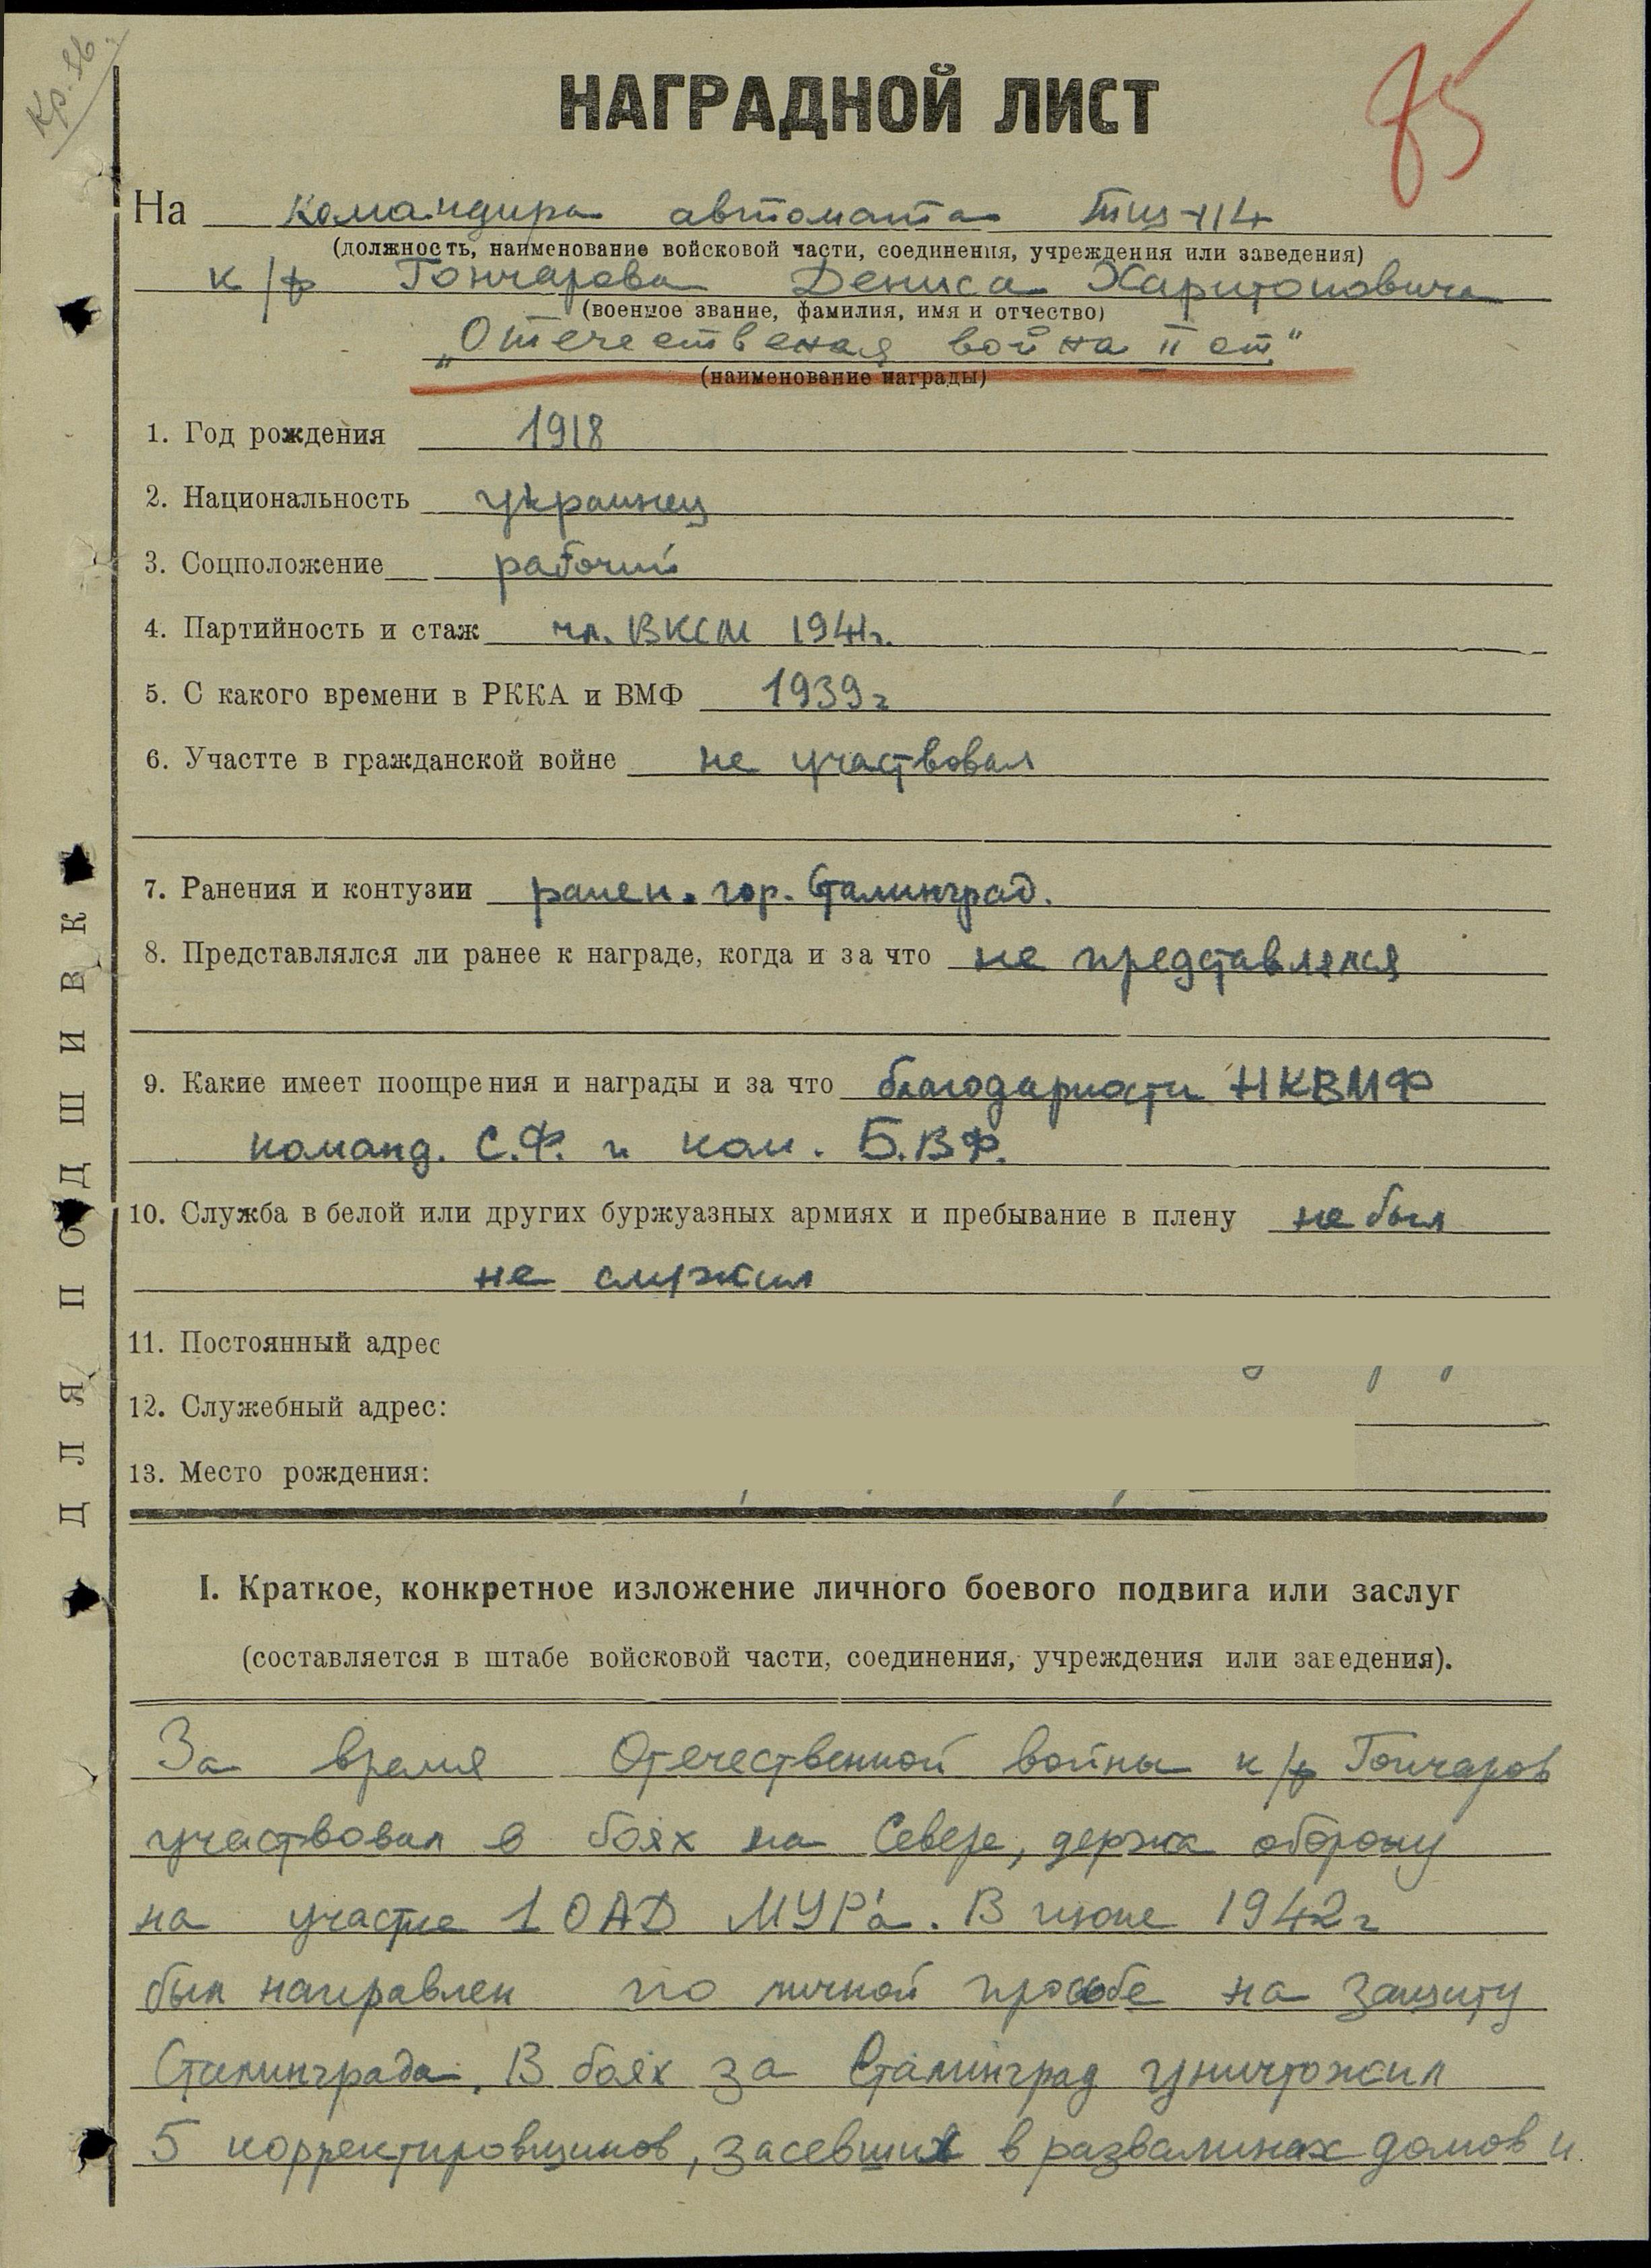 Кр. 36.
85
НАГРАДНОЙ ЛИСТ
На командира автомата ТКЩ-114
(должность, наименование войсковой части, соединения, учреждения или заведения)
к/ф Гончарова Дениса Харитоновича
(военное звание, фамилия, имя и отчество)
„Отечественая война II ст."
(наименование награды)
1. Год рождения 1918
2. Национальность украинец
3. Соцположение рабочий
4. Партийность и стаж чл. ВКСМ 1941г.
5. С какого времени в РККА и ВМФ 1939г
6. Участте в гражданской войне не участвовал
7. Ранения и контузии ранен. гор. Сталинград.
8. Представлялся ли ранее к награде, когда и за что не представлялся
9. Какие имеет поощрения и награды и за что благодарности НКВМФ
команд. С.Ф. и ком. Б.В.Ф.
10. Служба в белой или других буржуазных армиях и пребывание в плену не был
не служил
11. Постоянный адрес
12. Служебный адрес:
13. Место рождения:
I. Краткое, конкретное изложение личного боевого подвига или заслуг
(составляется в штабе войсковой части, соединения, учреждения или заведения).
За время Отечественной войны к/ф Гончаров
участвовал в боях на Севере, держа оборону
на участке 1 ОАД МУР'а. В июне 1942г
был направлен по личной просьбе на защиту
Сталинграда. В боях за Сталинград уничтожил
5 корректировщиков, засевших в развалинах домов и
ДЛЯ ПОДШИВК